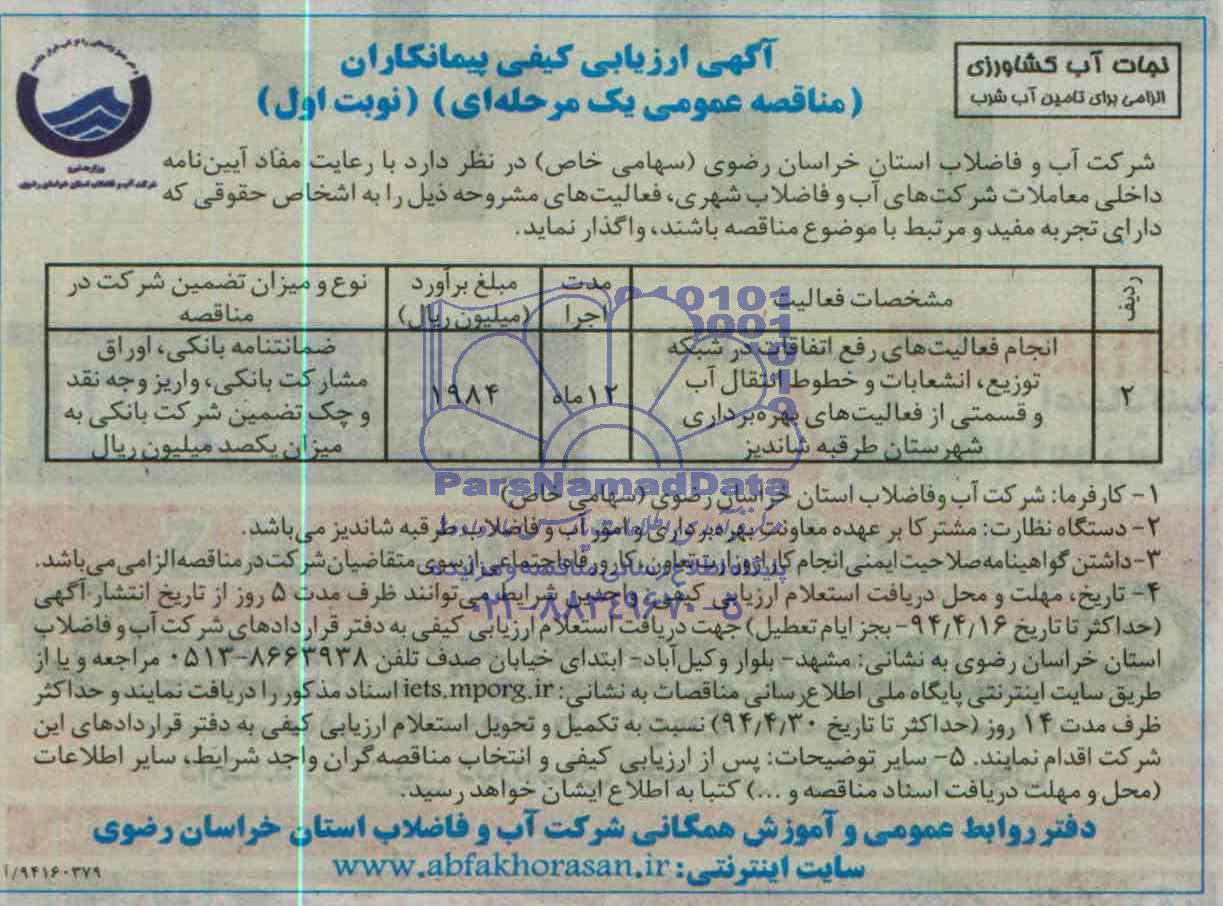 نجات آب کشاورزی
الزامی برای تامین آب شرب
آگهی ارزیابی کیفی پیمانکاران
(مناقصه عمومی یک مرحله‌ای) (نوبت اول)
وزارت نیرو
شرکت آب و فاضلاب استان خراسان رضوی
شرکت آب و فاضلاب استان خراسان رضوی (سهامی خاص) در نظر دارد با رعایت مفاد آیین‌نامه
داخلی معاملات شرکت‌های آب و فاضلاب شهری، فعالیت‌های مشروحه ذیل را به اشخاص حقوقی که
دارای تجربه مفید و مرتبط با موضوع مناقصه باشند، واگذار نماید.
ردیف
مشخصات فعالیت
مدت
اجرا
مبلغ برآورد
(میلیون ریال)
نوع و میزان تضمین شرکت در
مناقصه
۲
انجام فعالیت‌های رفع اتفاقات در شبکه
توزیع، انشعابات و خطوط انتقال آب
و قسمتی از فعالیت‌های بهره‌برداری
شهرستان طرقبه شاندیز
۱۲ ماه
۱۹۸۴
ضمانتنامه بانکی، اوراق
مشارکت بانکی، واریز وجه نقد
و چک تضمین شرکت بانکی به
میزان یکصد میلیون ریال
ParsNamadData
۱- کارفرما: شرکت آب وفاضلاب استان خراسان رضوی (سهامی خاص)
۲- دستگاه نظارت: مشترکا بر عهده معاونت بهره‌برداری و امور آب و فاضلاب طرقبه شاندیز می‌باشد.
۳-داشتن گواهینامه صلاحیت ایمنی انجام کار از وزارت تعاون، کار و رفاه اجتماعی از سوی متقاضیان شرکت در مناقصه الزامی می‌باشد.
پایگاه اطلاع رسانی مناقصه و مزایده
۴- تاریخ، مهلت و محل دریافت استعلام ارزیابی کیفی: واجدین شرایط می‌توانند ظرف مدت ۵ روز از تاریخ انتشار آگهی
۰۲۱-۸۸۳۴۹۶۷۰-۵
(حداکثر تا تاریخ ۹۴/۴/۱۶- بجز ایام تعطیل) جهت دریافت استعلام ارزیابی کیفی به دفتر قراردادهای شرکت آب و فاضلاب
استان خراسان رضوی به نشانی: مشهد- بلوار وکیل‌آباد- ابتدای خیابان صدف تلفن ۸۶۶۳۹۳۸-۰۵۱۳ مراجعه و یا از
طریق سایت اینترنتی پایگاه ملی اطلاع‌رسانی مناقصات به نشانی: iets.mporg.ir اسناد مذکور را دریافت نمایند و حداکثر
ظرف مدت ۱۴ روز (حداکثر تا تاریخ ۹۴/۴/۳۰) نسبت به تکمیل و تحویل استعلام ارزیابی کیفی به دفتر قراردادهای این
شرکت اقدام نمایند. ۵- سایر توضیحات: پس از ارزیابی کیفی و انتخاب مناقصه‌گران واجد شرایط، سایر اطلاعات
(محل و مهلت دریافت اسناد مناقصه و ...) کتبا به اطلاع ایشان خواهد رسید.
دفتر روابط عمومی و آموزش همگانی شرکت آب و فاضلاب استان خراسان رضوی
سایت اینترنتی: www.abfakhorasan.ir
۹۴۱۶۰۳۷۹/آ